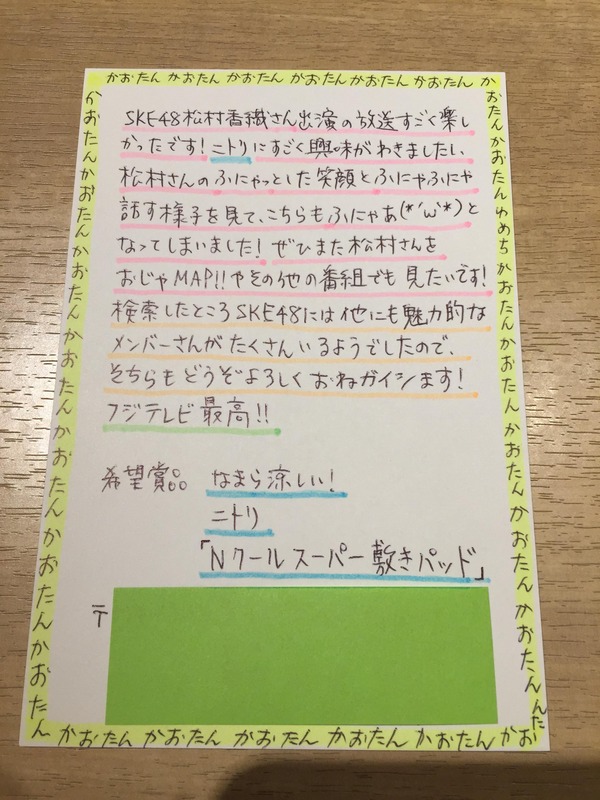 かおたん かおたん かおたん かおたん かおたん かおたん か
SKE48松村香織さん出演の放送すごく楽し
かったです!ニトリにすごく興味がわきましたし、
松村さんのふにゃっとした笑顔とふにゃふにゃ
話す様子を見て、こちらもふにゃあ(*´ω`*)と
なってしまいました!ぜひまた松村さんを
おじゃMAP!!やその他の番組でも見たいです!
検索したところSKE48には他にも魅力的な
メンバーさんがたくさんいるようでしたので、
そちらもどうぞよろしくおねガイシます!
フジテレビ最高!!
希望賞品 なまら涼しい!
ニトリ
「Nクールスーパー敷きパッド」
〒
かおたんかおたんかおたんかおたんかおたんかおたんかおたん
かおたん かおたん かおたん かおたん かおたん かお